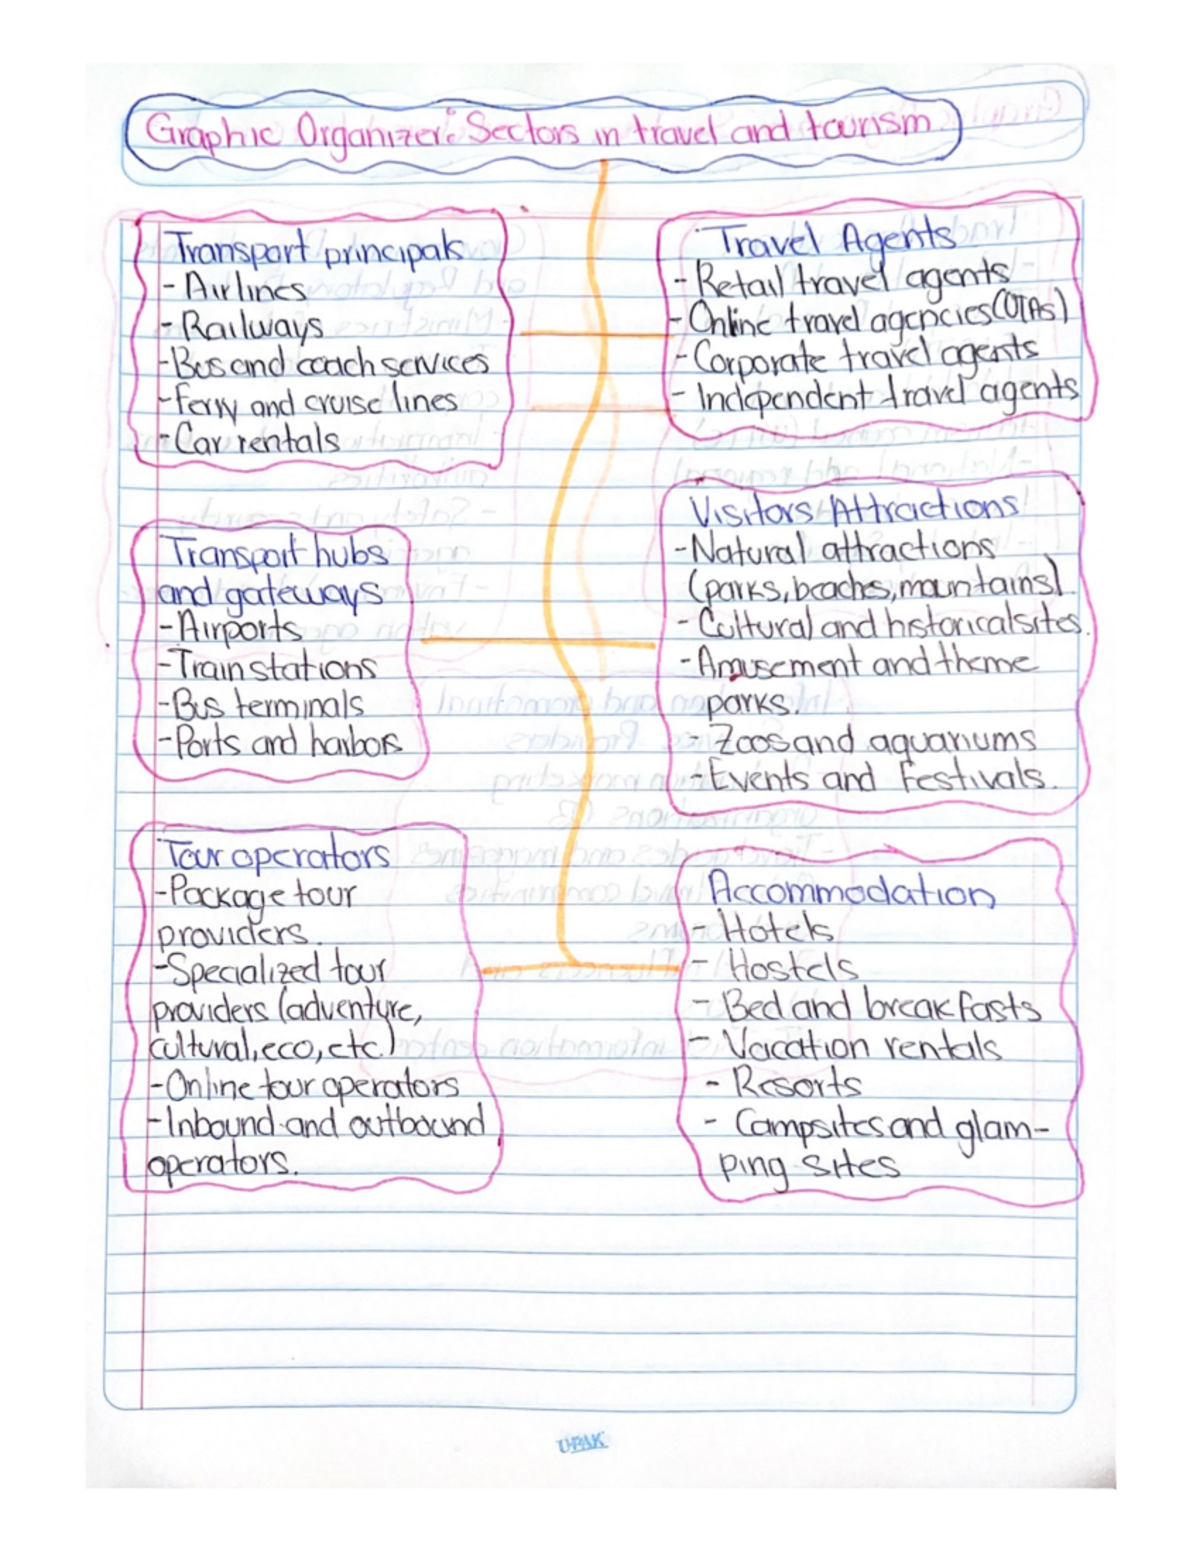 Graphic Organizer: Sectors in travel and tourism
Transport principals
- Airlines
- Railways
- Bus and coach services
- Ferry and cruise lines
- Car rentals
Transport hubs
and gateways
- Airports
- Train stations
- Bus terminals
- Ports and harbors
Tour operators
- Package tour
providers.
- Specialized tour
providers (adventure,
cultural, eco, etc.)
- Online tour operators
- Inbound and outbound
operators.
Travel Agents
- Retail travel agents
- Online travel agencies (OTAs)
- Corporate travel agents
- Independent travel agents
Visitors Attractions
- Natural attractions
(parks, beaches, mountains)
- Cultural and historical sites.
- Amusement and theme
parks.
- Zoos and aquariums
- Events and Festivals.
Accommodation
- Hotels
- Hostels
- Bed and breakfasts
- Vacation rentals
- Resorts
- Campsites and glam-
ping sites